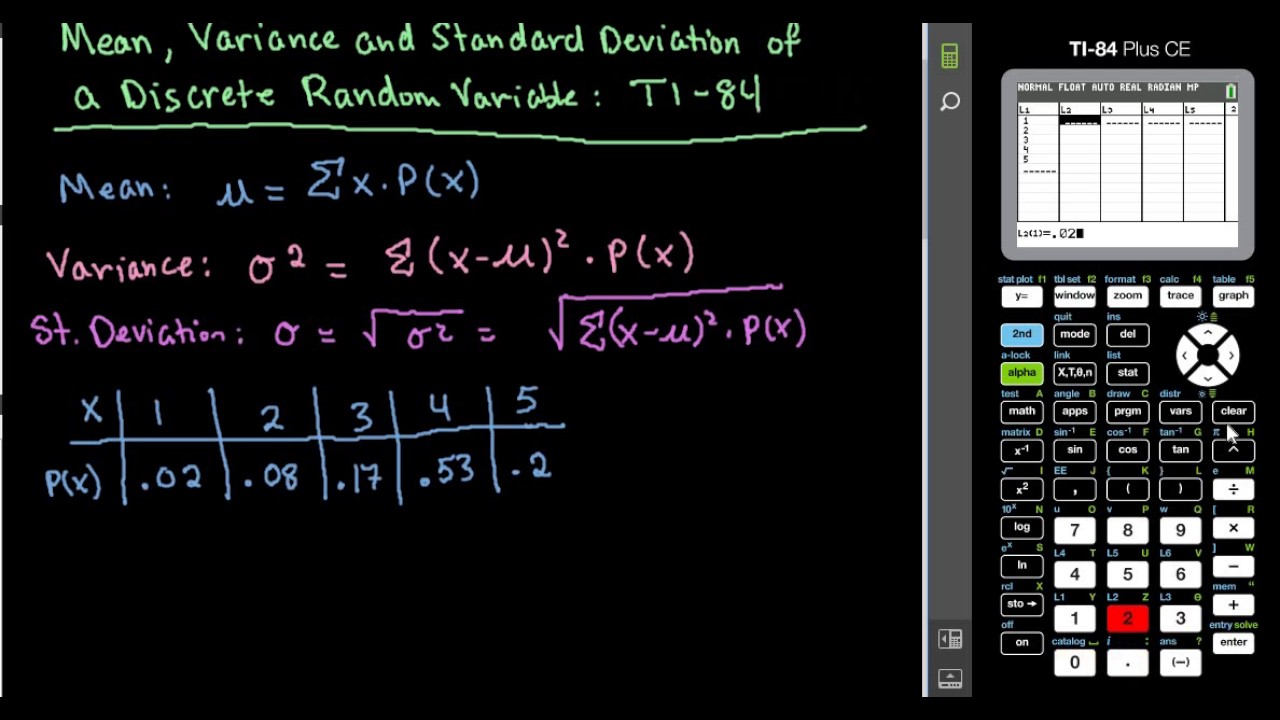 Mean, Variance and Standard Deviation of
a Discrete Random Variable: TI-84
Mean: μ = Σx·P(x)
Variance: σ² = Σ(x-μ)²·P(x)
St. Deviation: σ = √σ² = √Σ(x-μ)²·P(x)
X 1 2 3 4 5
P(x) .02 .08 .17 .53 .2
TI-84 Plus CE
NORMAL FLOAT AUTO REAL RADIAN MP
L1 L2 L3 L4 L5 2
1
2
3
4
5
L2(1)=.02
stat plot f1 tbl set f2 format f3 calc f4 table f5
y= window zoom trace graph
quit ins
2nd mode del
a-lock link list
alpha X,T,θ,n stat
test A angle B draw C distr
math apps prgm vars clear
matrix D sin⁻¹ E cos⁻¹ F tan⁻¹ G π H
x⁻¹ sin cos tan ^
√ I EE J { K } L e M
x² , ( ) ÷
10ˣ N u O v P w Q [ R
log 7 8 9 ×
eˣ S L4 T L5 U L6 V ] W
ln 4 5 6 −
rcl X L1 Y L2 Z L3 θ mem "
sto→ 1 2 3 +
off catalog i : ans ? entry solve
on 0 . (−) enter